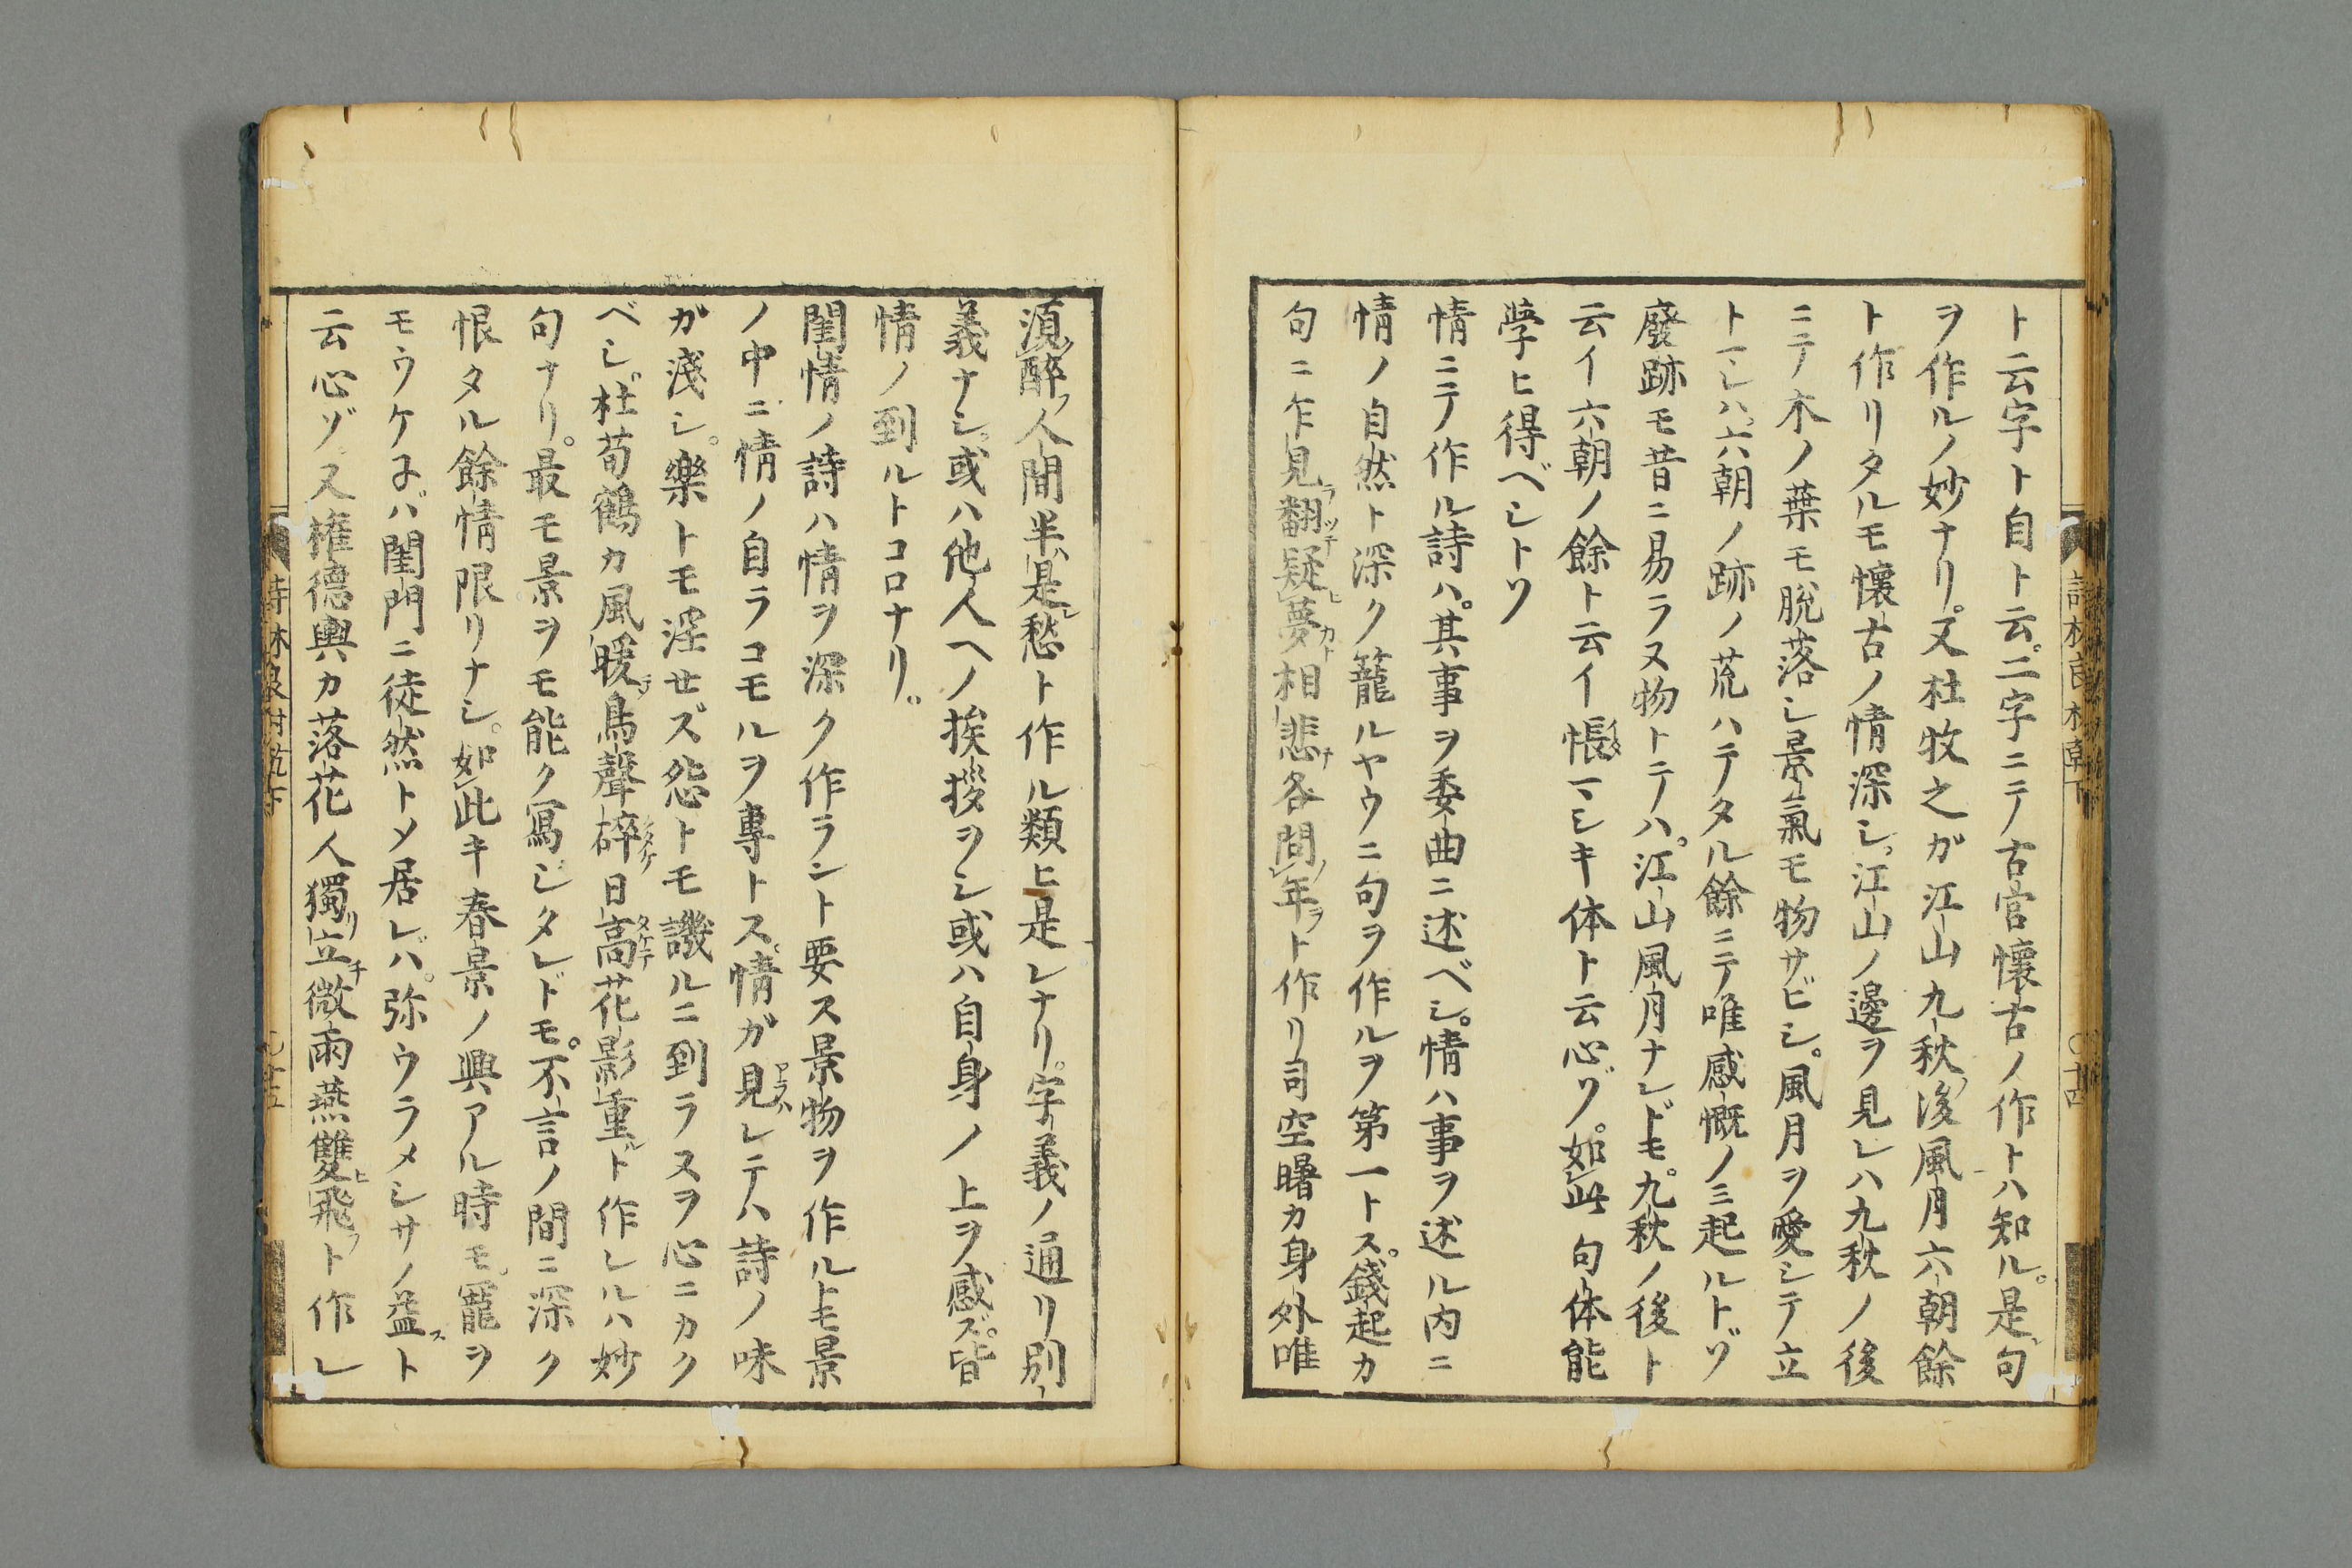 ト云字ト自ト云。二字ニテ古宮懐古ノ作トハ知ル。是句
ヲ作ルノ妙ナリ。又杜牧之ガ江山九秋後風月六朝餘
ト作リタルモ懐古ノ情深シ。江山ノ邊ヲ見レハ九秋ノ後
ニテ木ノ葉モ脱落シ景氣モ物サビシ。風月ヲ愛シテ立
トマレハ。六朝ノ跡ノ荒ハテタル餘ニテ唯感慨ノミ起ルトヅ
廢跡モ昔ニ易ラヌ物トテハ。江山風月ナレドモ。九秋ノ後ト
云イ六朝ノ餘ト云イ悵マシキ体ト云心ヅ。如此句体能
學ヒ得ベシトツ
情ニテ作ル詩ハ。其事ヲ委曲ニ述ベシ。情ハ事ヲ述ル内ニ
情ノ自然ト深ク籠ルヤウニ句ヲ作ルヲ第一トス。錢起カ
句ニ乍見翻疑夢相悲各問年ト作リ司空曙カ身外唯
須醉人間半是愁ト作ル類ヒ是レナリ。字義ノ通リ別ノ
義ナシ。或ハ他人ヘノ挨拶ヲシ或ハ自身ノ上ヲ感ズ。皆
情ノ到ルトコロナリ。
閨情ノ詩ハ情ヲ深ク作ラント要ス景物ヲ作ルトモ景
ノ中ニ情ノ自ラコモルヲ專トス。情ガ見レテハ詩ノ味
ガ淺シ。樂トモ淫セズ怨トモ譏ルニ到ラヌヲ心ニカク
ベシ。杜荀鶴カ風暖鳥聲碎日高花影重ト作レルハ妙
句ナリ。最モ景ヲモ能ク寫シタレドモ。不言ノ間ニ深ク
恨タル餘情限リナシ。如此キ春景ノ興アル時モ寵ヲ
モウケネバ閨門ニ徒然トメ居レバ。弥ウラメシサノ益ト
云心ヅ又権德輿カ落花人獨立微雨燕雙飛ト作レ